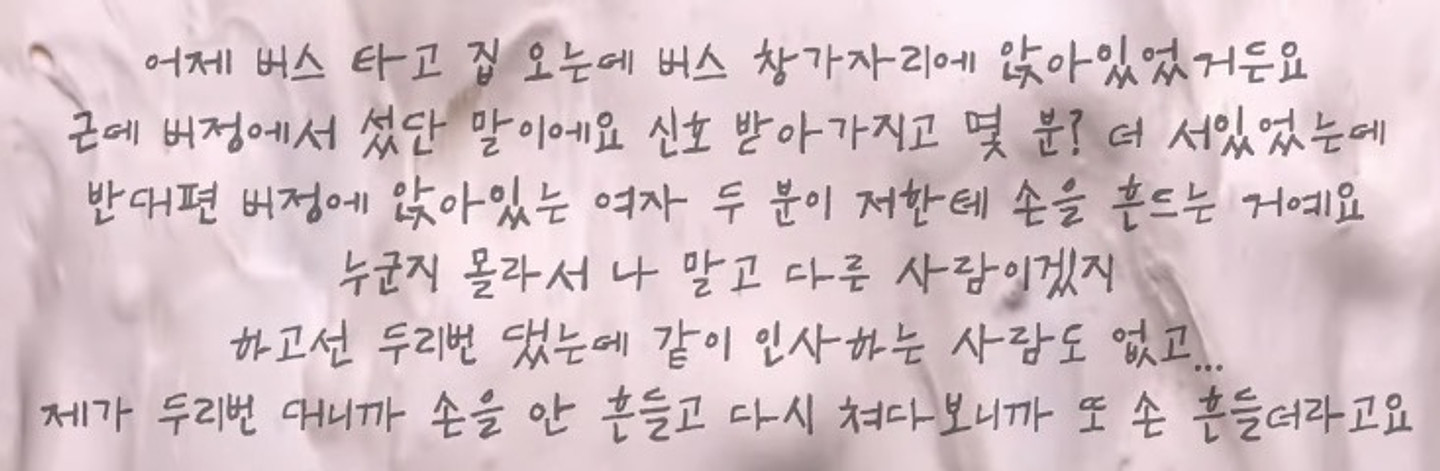 어제 버스 타고 집 오는데 버스 창가자리에 앉아있었거든요
근데 버정에서 섰단 말이에요 신호 받아가지고 몇 분? 더 서있었는데
반대편 버정에 앉아있는 여자 두 분이 저한테 손을 흔드는 거예요
누군지 몰라서 나 말고 다른 사람이겠지
하고선 두리번 댔는데 같이 인사하는 사람도 없고...
제가 두리번 대니까 손을 안 흔들고 다시 쳐다보니까 또 손 흔들더라고요